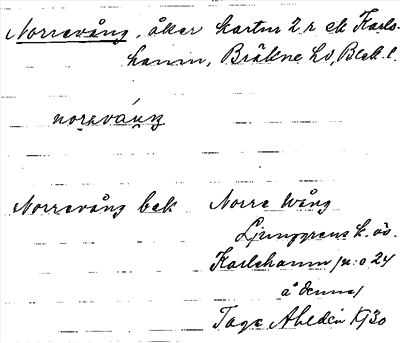 Norrevång, åker Startur 2 r ek Karls-
hamn, Bräkne hd, Blek. l.
norevåŋ
Norrevång bek Norre Wång
Ljunggrens k. ös.
Karlshamn /n:o 24
å denna/
Tage Ahldén 1930